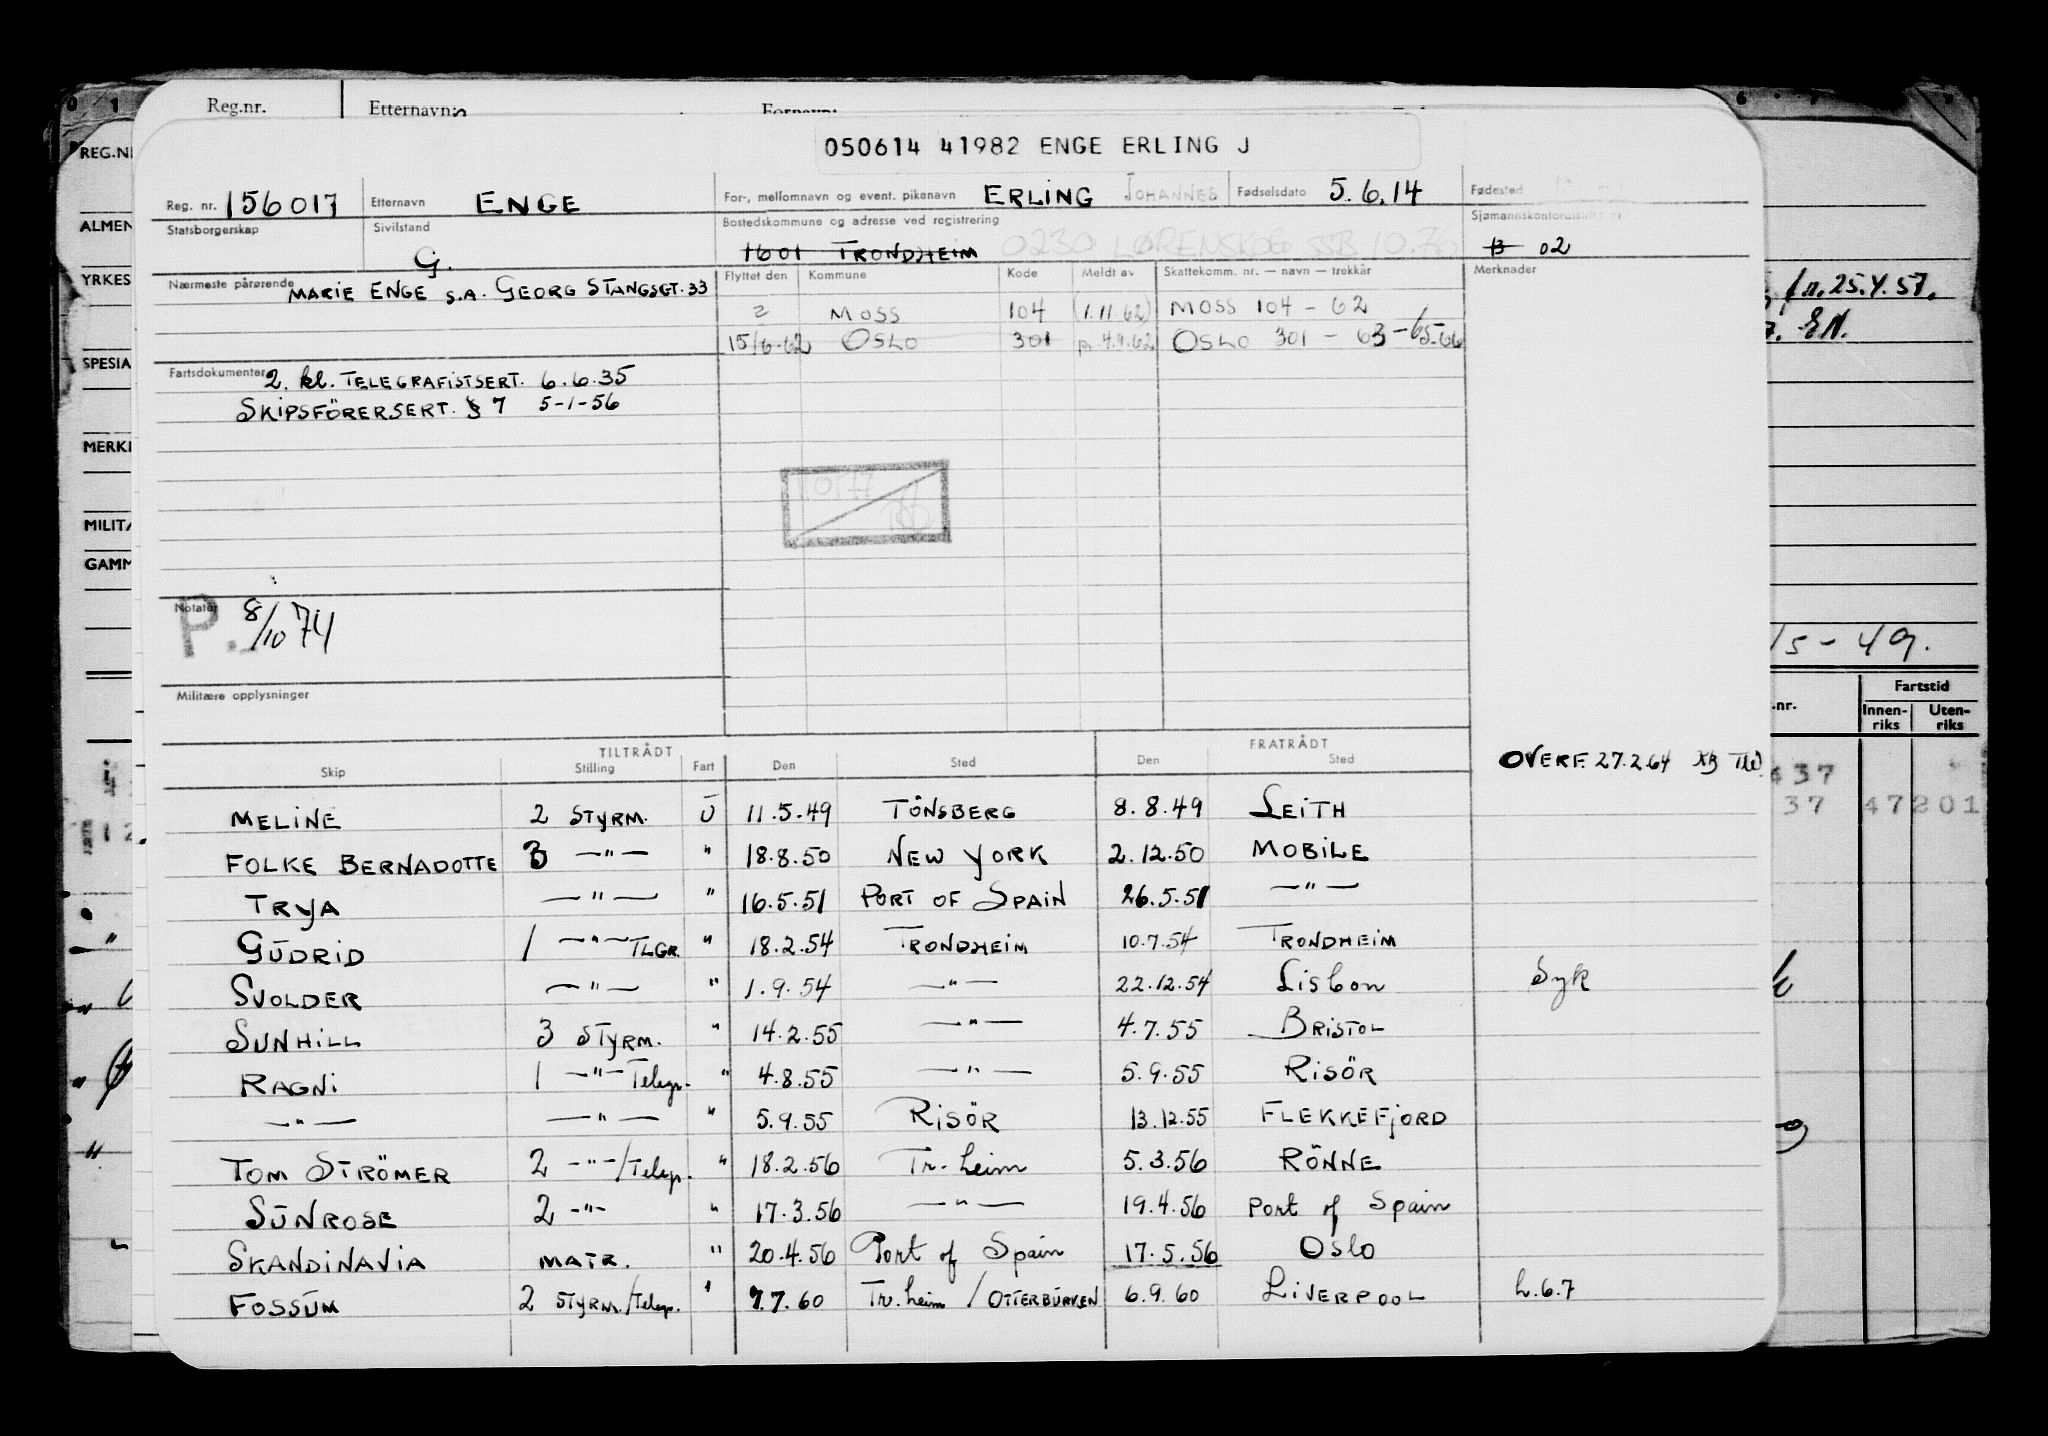 Reg.nr. Etternavn: Fornavn:
050614 41982 ENGE ERLING J
Reg. nr. 156017 Etternavn ENGE For-, mellomnavn og event. pikenavn ERLING JOHANNES Fødselsdato 5.6.14 Fødested
Statsborgerskap Sivilstand G. Bostedskommune og adresse ved registrering 1601 TRONDHEIM 0230 LØRENSKOG SSB 10.76 Sjømannskontordistrikt nr. 13 02
Nærmeste pårørende MARIE ENGE S.A. GEORG STANGSGT. 33 Flyttet den Kommune Kode Meldt av Skattekomm. nr. — navn — trekkår Merknader
2 MOSS 104 (1.11.62) MOSS 104 - 62
15/6-62 OSLO 301 pr. 4.9.62 OSLO 301 - 63 - 65-66
Fartsdokumenter 2. kl. TELEGRAFISTSERT. 6.6.35
SKIPSFÖRERSERT. § 7 5-1-56
Notater P. 8/10 74
Militære opplysninger
TILTRÅDT FRATRÅDT
Skip Stilling Fart Den Sted Den Sted OVERF. 27.2.64
MELINE 2 STYRM. U 11.5.49 TÖNSBERG 8.8.49 LEITH
FOLKE BERNADOTTE 3 —"— " 18.8.50 NEW YORK 2.12.50 MOBILE
TRYA —"— " 16.5.51 PORT OF SPAIN 26.5.51 —"—
GUDRID 1 —"— TLGR. " 18.2.54 TRONDHEIM 10.7.54 TRONDHEIM
SVOLDER —"— " 1.9.54 —"— 22.12.54 Lisbon Syk
SUNHILL 3 STYRM. " 14.2.55 —"— 4.7.55 BRISTOL
RAGNI 1 —"— Telegr. " 4.8.55 —"— 5.9.55 RISÖR
—"— —"— " 5.9.55 RISÖR 13.12.55 FLEKKEFJORD
TOM STRÖMER 2 —"—/Telegr. " 18.2.56 Tr.heim 5.3.56 RÖNNE
SUNROSE 2 —"— " 17.3.56 —"— 19.4.56 Port of Spain
SKANDINAVIA MATR. " 20.4.56 Port of Spain 17.5.56 Oslo
FOSSUM 2 STYRM./Telegr. " 7.7.60 Tr.heim / OTTERBURKEN 6.9.60 LIVERPOOL h.6.7
REG.N
ALMEN
YRKES
SPESIA
MERK
MILIT
GAMM
25.4.57.
15-49.
.nr. Fartstid
Innen-riks Uten-riks
437
37 47201